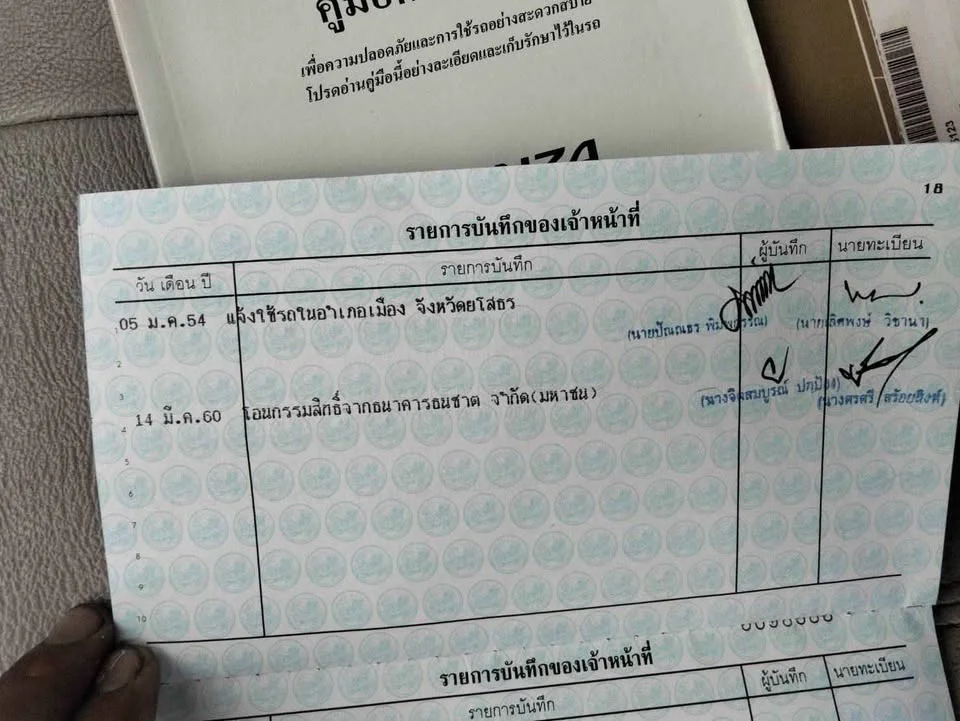 เพื่อความปลอดภัยและการใช้รถอย่างสะดวกสบาย
โปรดอ่านคู่มือนี้อย่างละเอียดและเก็บรักษาไว้ในรถ
18
รายการบันทึกของเจ้าหน้าที่
วัน เดือน ปี รายการบันทึก ผู้บันทึก นายทะเบียน
1 05 ม.ค.54 แจ้งใช้รถในอำเภอเมือง จังหวัดยโสธร
(นายปัณณธร พิมพวรรณ) (นายเลิศพงษ์ วิชานา)
2
3
4 14 มี.ค.60 โอนกรรมสิทธิ์จากธนาคารธนชาต จำกัด(มหาชน)
(นางจิตสมบูรณ์ ปกป้อง)
5
6
7
8
9
10
รายการบันทึกของเจ้าหน้าที่
รายการบันทึก ผู้บันทึก นายทะเบียน